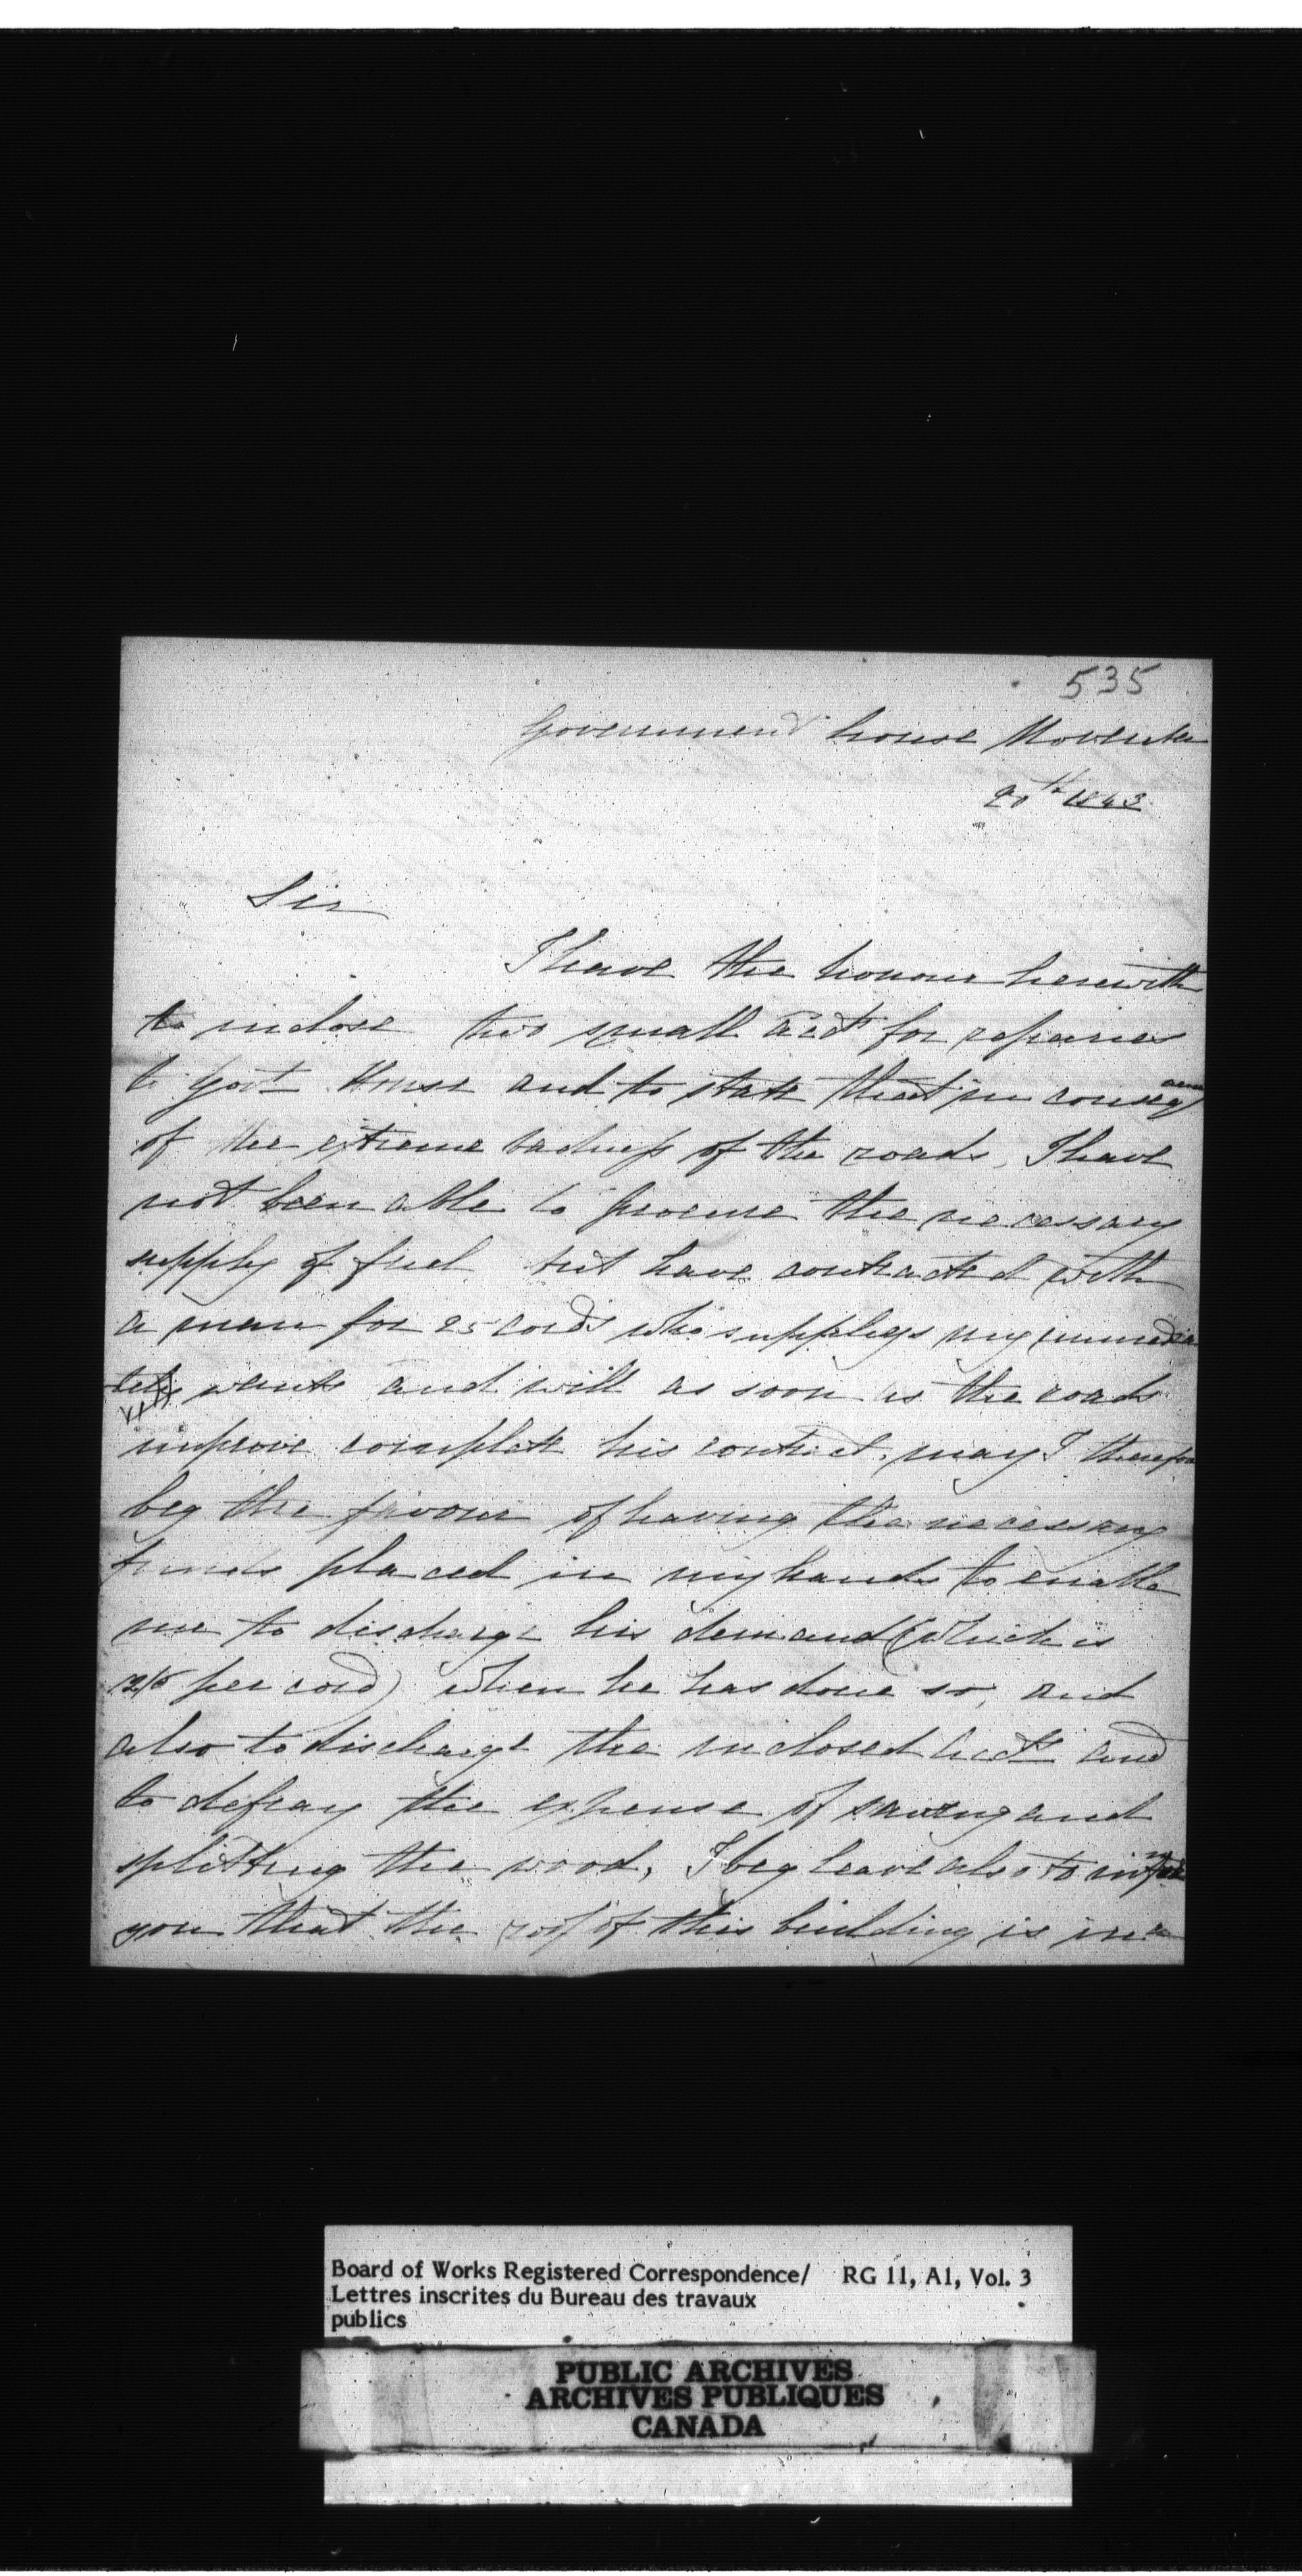 535
Government house November
20th 1843
Sir
I have the honour herewith
to inclose two small acct for repaires
to Govt House and to state that in conseq
of the extreme badness of the roads, I have
not been able to procure the necessary
supply of fuel but have contracted with
a man for 25 cords who supplys my immedia
wants and will as soon as the roads
improve complete his contract, may I therefore
beg the favour of having the necessary
funds placed in my hands to enable
me to discharge his demand (which is
per cord) when he has done so, and
also to discharge the inclosed accts and
to defray the expense of sawing and
splitting the wood, I beg leave also to inform
you that the roof of this building is in a
Board of Works Registered Correspondence/ RG 11, A1, Vol. 3
Lettres inscrites du Bureau des travaux
publics
PUBLIC ARCHIVES
ARCHIVES PUBLIQUES
CANADA